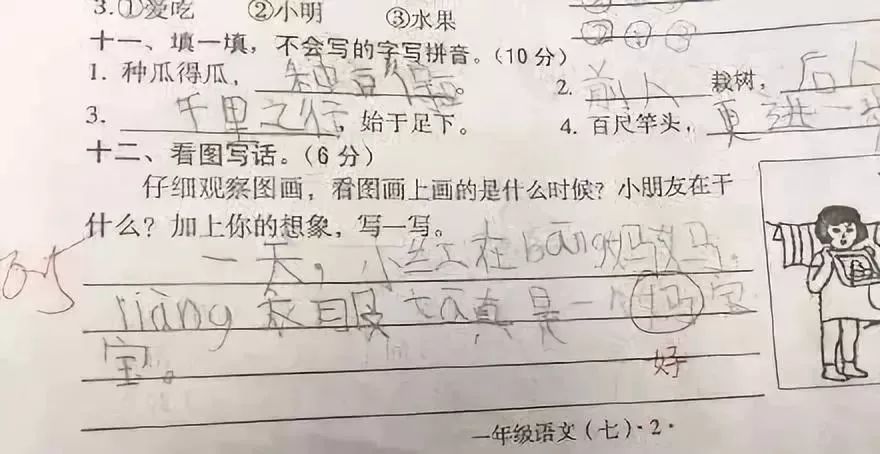 3.①爱吃 ②小明 ③水果
② ① ③
十一、填一填，不会写的字写拼音。(10分)
1. 种瓜得瓜， 种豆得豆。 2. 前人 栽树， 后人
3. 千里之行，始于足下。 4. 百尺竿头， 更进一步
十二、看图写话。(6分)
仔细观察图画，看图画上画的是什么时候？小朋友在干
什么？加上你的想象，写一写。
一天，小红在bāng妈妈
liàng衣服 tā真是一个妈宝
宝。
好
一年级语文（七）·2·